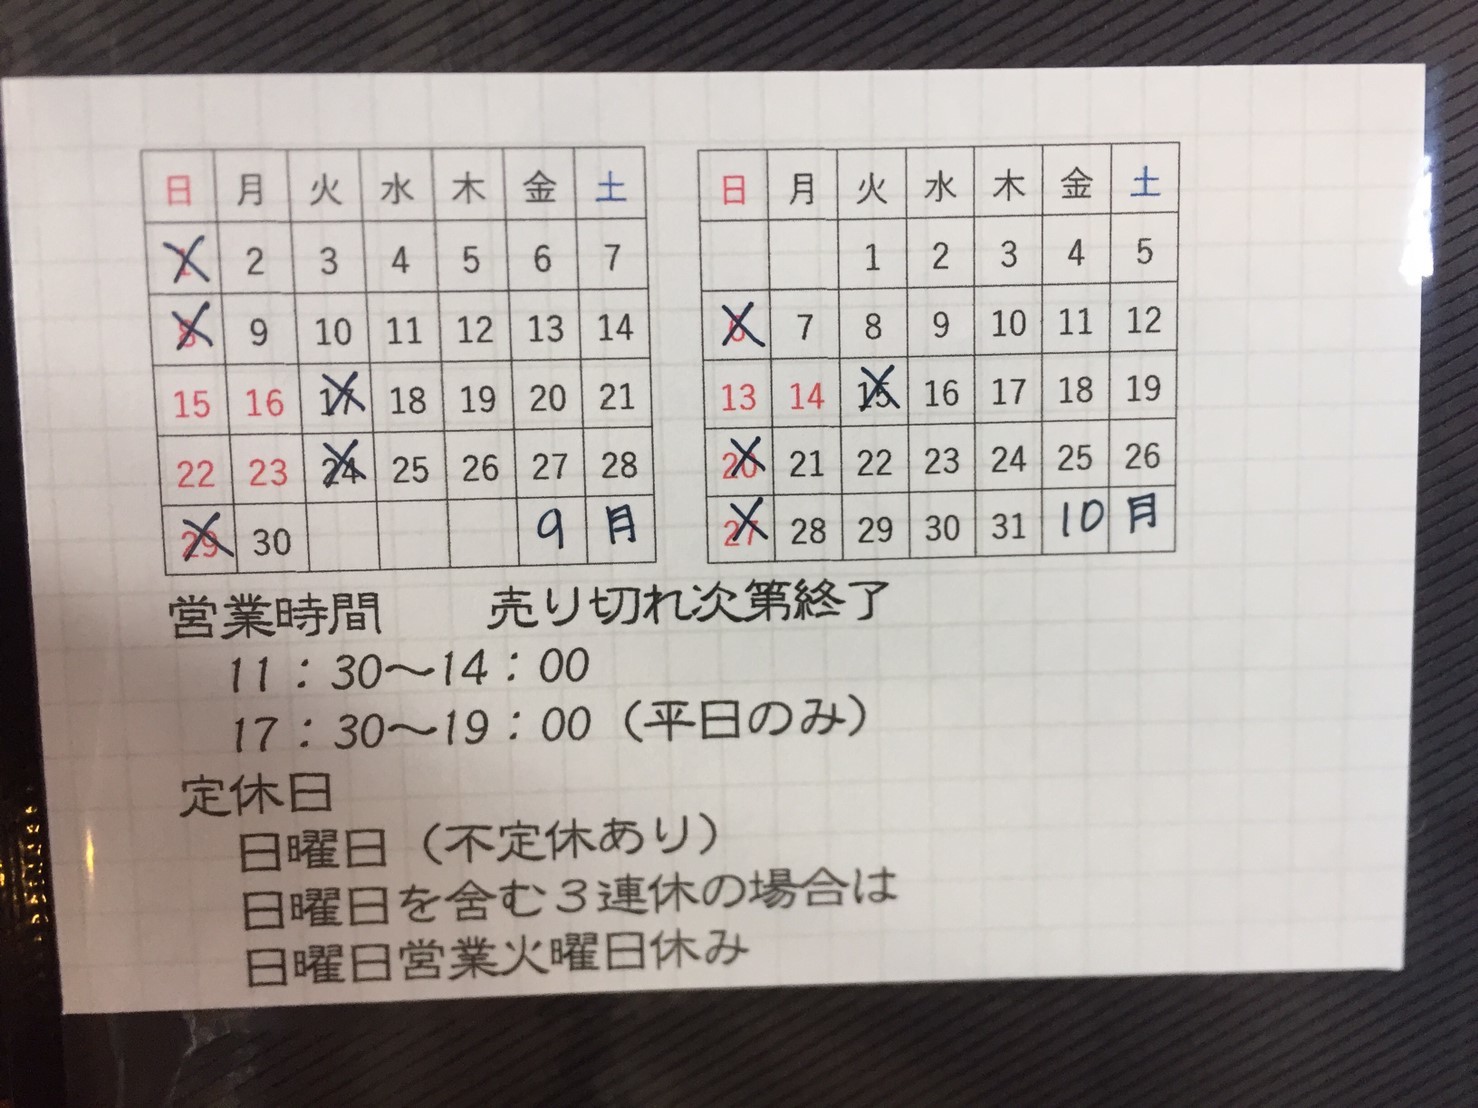 日 月 火 水 木 金 土
1 2 3 4 5 6 7
8 9 10 11 12 13 14
15 16 17 18 19 20 21
22 23 24 25 26 27 28
29 30 9 月
日 月 火 水 木 金 土
1 2 3 4 5
6 7 8 9 10 11 12
13 14 15 16 17 18 19
20 21 22 23 24 25 26
27 28 29 30 31 10 月
営業時間 売り切れ次第終了
11：30～14：00
17：30～19：00（平日のみ）
定休日
日曜日（不定休あり）
日曜日を含む３連休の場合は
日曜日営業火曜日休み